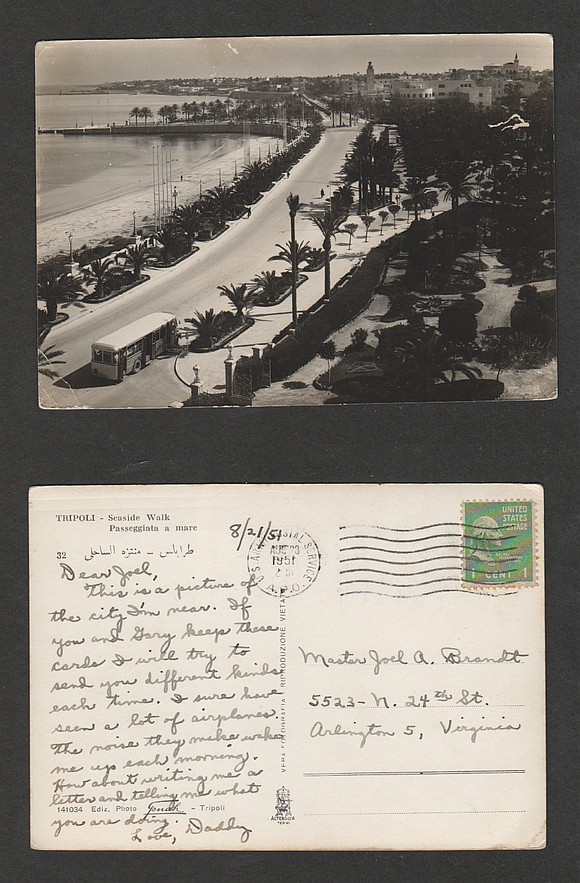 TRIPOLI - Seaside Walk
Passeggiata a mare
32 طرابلس - منتزه الساحلى
8/21/51
U.S. ARMY POSTAL SERVICE
AUG 23
1951
A.P.O.
UNITED STATES POSTAGE
1 CENT 1
Dear Joel,
This is a picture of
the city I'm near. If
you and Gary keep these
cards I will try to
send you different kinds
each time. I sure have
seen a lot of airplanes.
The noise they make wakes
me up each morning.
How about writing me a
letter and telling me what
you are doing.
Love, Daddy
141034 Ediz. Photo - Tripoli
VERA FOTOGRAFIA RIPRODUZIONE VIETATA
ALTEROCCA
TERNI
Master Joel A. Brandt
5523-N. 24th St.
Arlington 5, Virginia